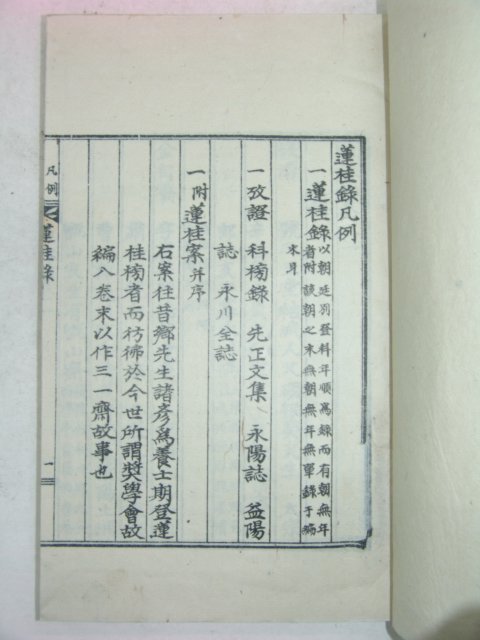 蓮桂錄凡例
一蓮桂錄以朝廷列登科年順爲錄而有朝無年
者附該朝之末無朝無年無單錄于編
末耳
一攷證 科榜錄 先正文集 永陽誌 益陽
誌 永川全誌
一附蓮桂案并序
右案往昔鄉先生諸彥爲養士期登蓮
桂榜者而彷彿於今世所謂奬學會故
編入卷末以作三一齋故事也
凡例
蓮桂錄
一